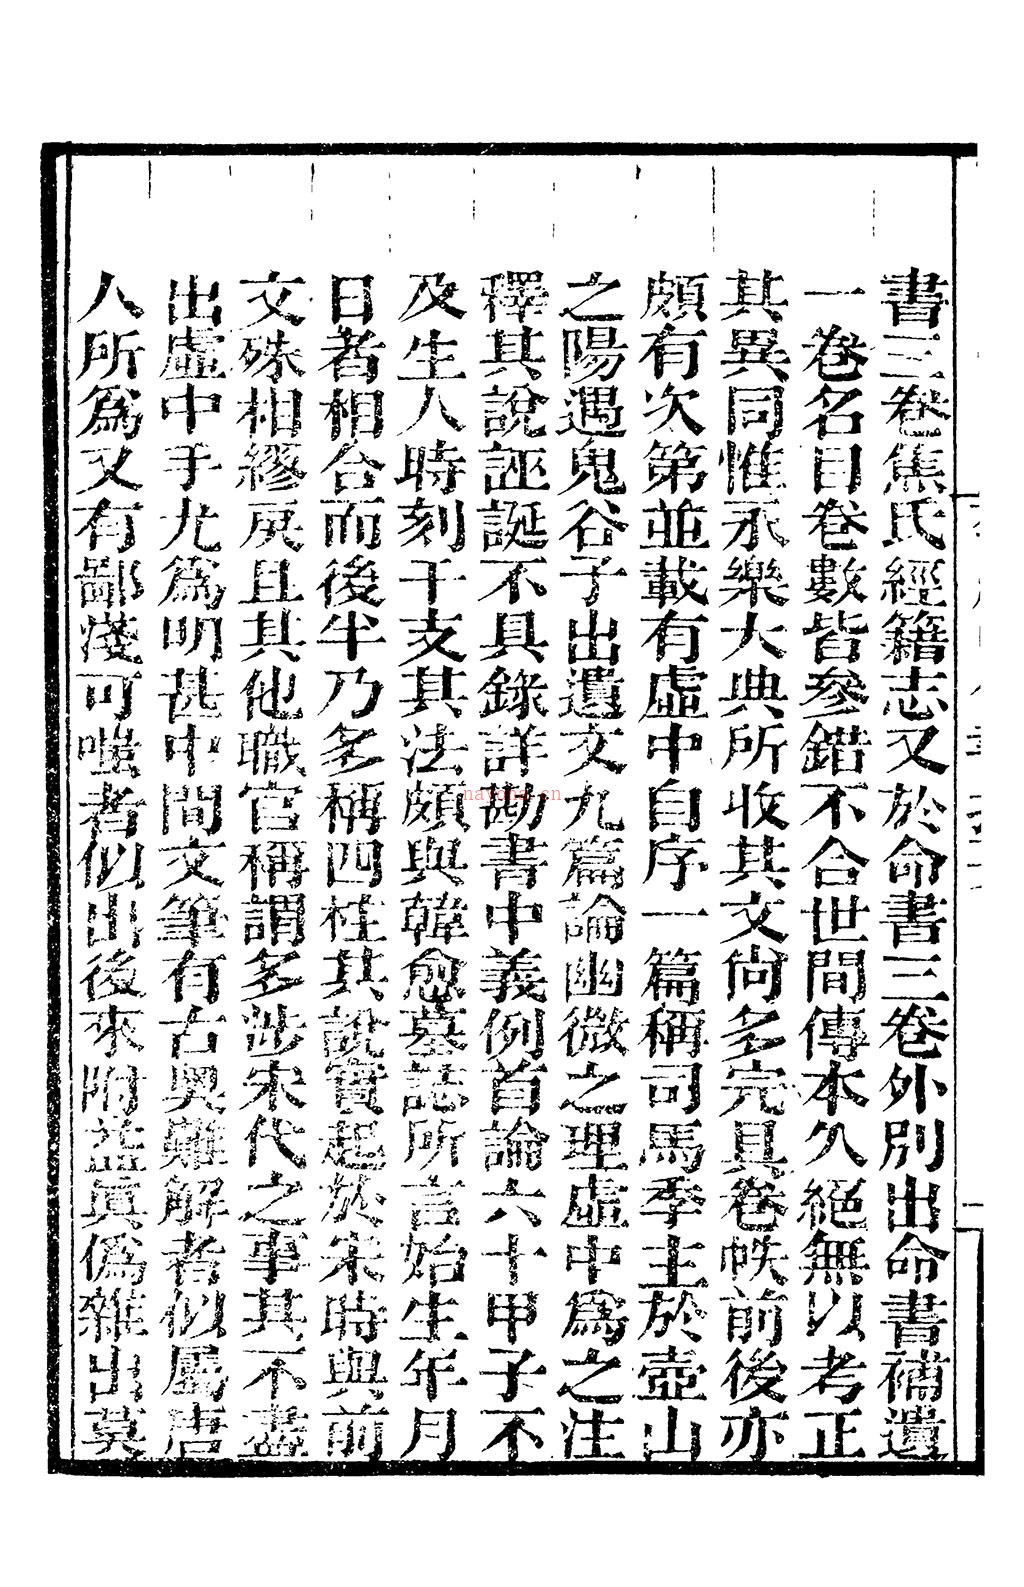 書三卷焦氏經籍志又於命書三卷外別出命書補遺
一卷名目卷數皆參錯不合世間傳本久絕無以考正
其異同惟永樂大典所收其文尙多完具卷帙前後亦
頗有次第並載有虛中自序一篇稱司馬季主於壺山
之陽遇鬼谷子出遺文九篇論幽微之理虛中爲之注
釋其說誣誕不具錄詳勘書中義例首論六十甲子不
及生人時刻干支其法頗與韓愈墓誌所言始生年月
日者相合而後半乃多稱四柱其說實起於宋時與前
文殊相繆戾且其他職官稱謂多涉宋代之事其不盡
出虛中手尤爲明甚中間文筆有古奧難解者似屬唐
人所爲又有鄙淺可嗤者似出後來附益眞僞雜出莫
nayona.cn